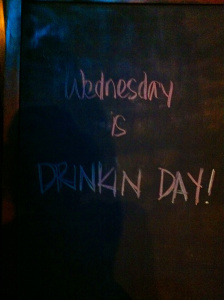 Wednesday
is
DRINKIN DAY!